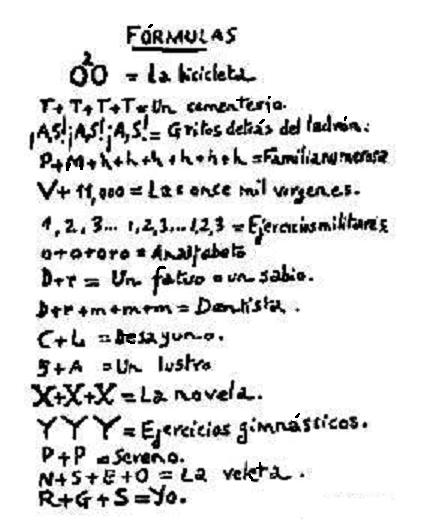 FÓRMULAS
O²O = La bicicleta
T+T+T+T=Un cementerio.
¡A,S!¡A,S!¡A,S!= Gritos detrás del ladrón.
P+M+h+h+h+h+h+h =Familia numerosa
V+11,000=Las once mil vírgenes.
1,2,3... 1,2,3...1,2,3 = Ejercicios militares
o+o+o+o = Analfabeto
D+r = Un fatuo o un sabio.
D+r+m+m+m= Dentista.
C+L =Desayuno.
5+A =Un lustro
X+X+X=La novela.
Y Y Y= Ejercicios gimnásticos.
P+P =Sereno.
N+S+E+O = La veleta.
R+G+S=Yo.